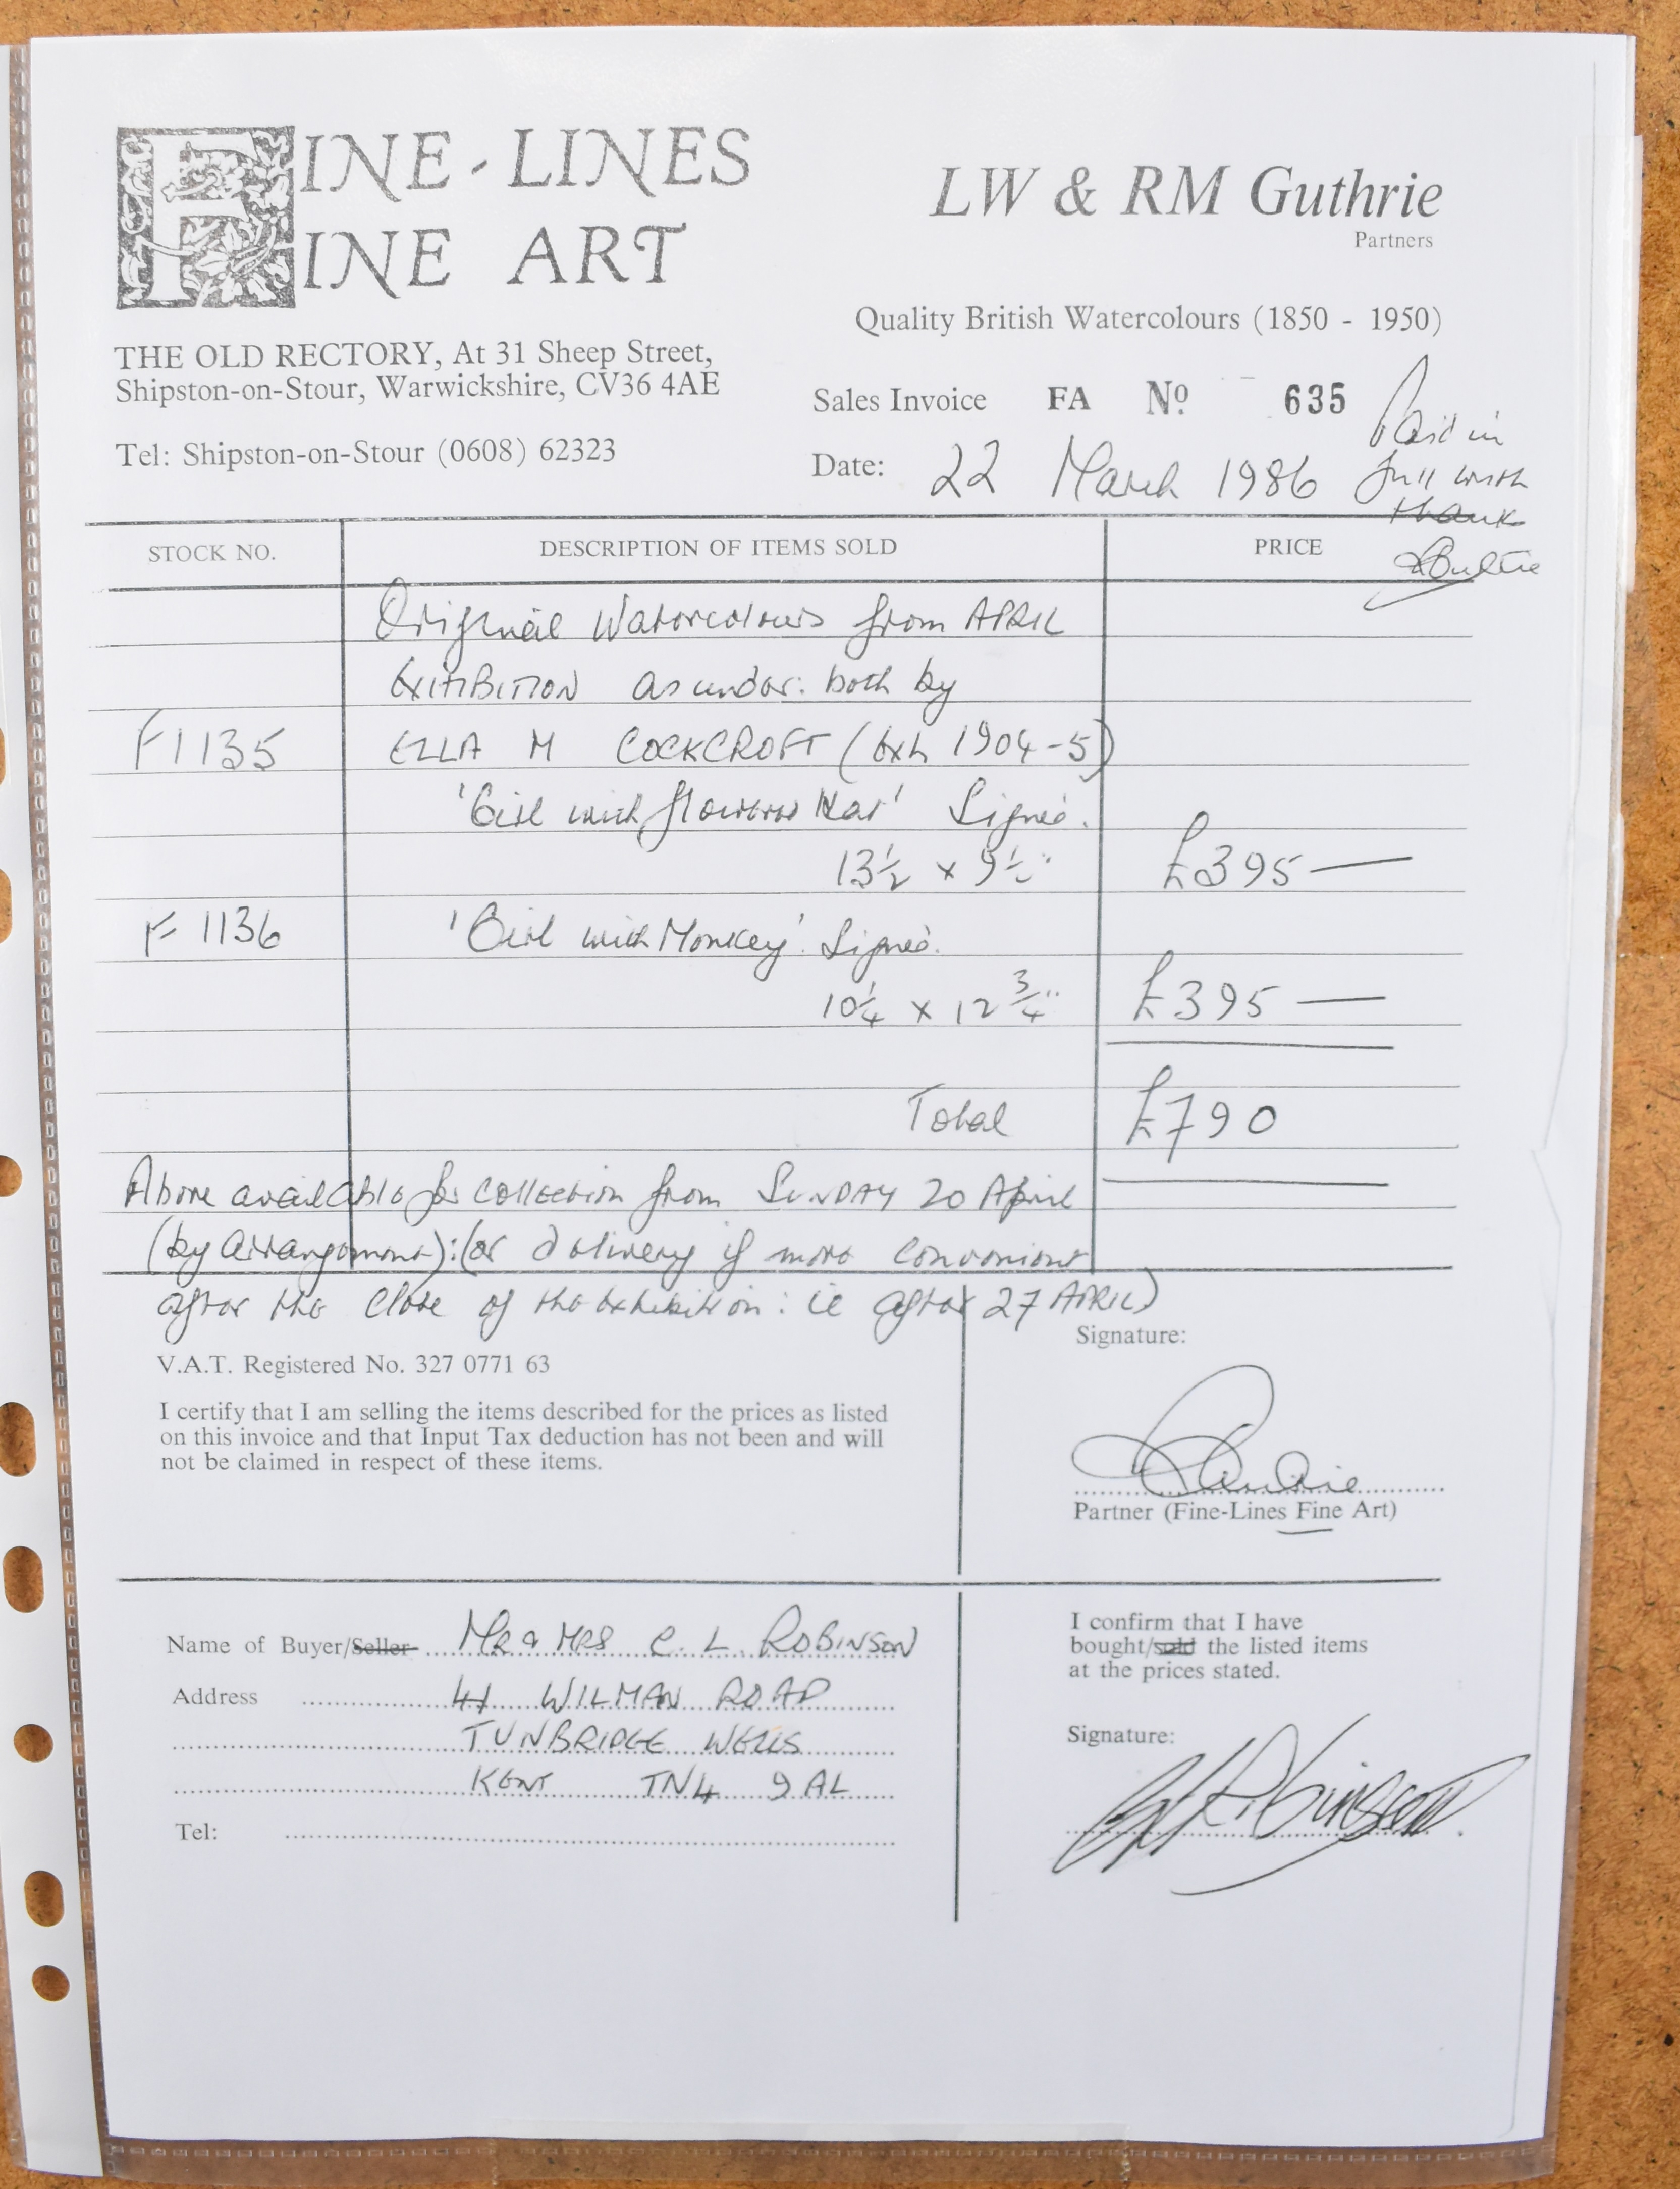 FINE-LINES
FINE ART
LW & RM Guthrie
Partners
Quality British Watercolours (1850 - 1950)
THE OLD RECTORY, At 31 Sheep Street,
Shipston-on-Stour, Warwickshire, CV36 4AE
Tel: Shipston-on-Stour (0608) 62323
Sales Invoice FA Nº 635
Date: 22 March 1986
Paid in
full with
thanks
STOCK NO. DESCRIPTION OF ITEMS SOLD PRICE
Original Watercolours from APRIL
EXHIBITION as under: both by
F1135 ELLA M COCKCROFT (exh 1904-5)
'Girl with flowered Hat' Signed.
13½ x 9½" £395—
F 1136 'Girl with Monkey'. Signed.
10¼ x 12¾" £395—
Total £790
Above available for collection from SUNDAY 20 April
(by arrangement): (or delivery if more convenient
after the close of the exhibition: ie after 27 APRIL)
V.A.T. Registered No. 327 0771 63
I certify that I am selling the items described for the prices as listed
on this invoice and that Input Tax deduction has not been and will
not be claimed in respect of these items.
Signature:
Guthrie
Partner (Fine-Lines Fine Art)
Name of Buyer/Seller MR & MRS C. L. ROBINSON
Address 41 WILMAN ROAD
TUNBRIDGE WELLS
KENT TN4 9AL
Tel:
I confirm that I have
bought/sold the listed items
at the prices stated.
Signature:
Robinson